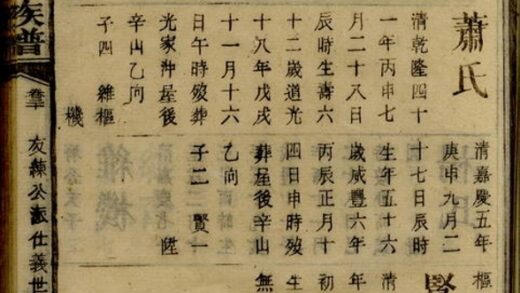 蕭氏
清乾隆四十
一年丙申七
月二十八日
辰時生壽六
十二歲道光
十八年戊戌
十一月十六
日午時歿葬
光家沖屋後
辛山乙向
子四 維樞
機
清嘉慶五年
庚申九月二
十七日辰時
生年五十六
歲咸豐六年
丙辰正月十
四日申時歿
葬屋後辛山
乙向
子二 賢一
陞
樞
賢
清
年
初
生
無
族譜
友練公派仕義世